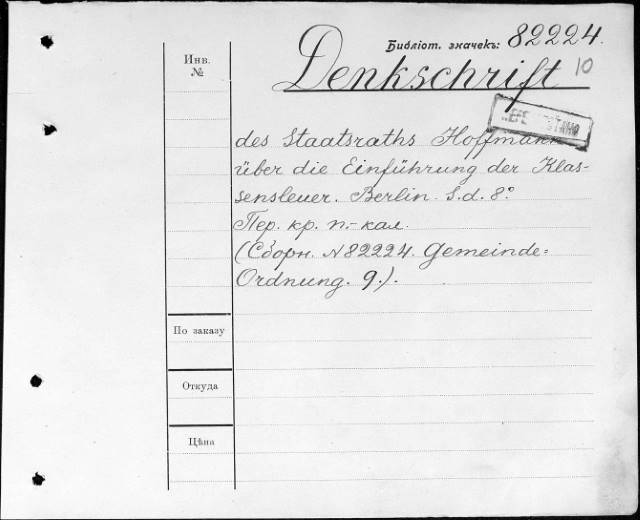 Библіот. значекъ: 82224.
Инв. №
Denkschrift 10
des Staatsraths Hoffmann
über die Einführung der Klas-
sensteuer. Berlin. S.d. 8°.
Пер. кр. п.-кал.
(Сборн. № 82224. Gemeinde-
Ordnung. 9.).
По заказу
Откуда
Цѣна